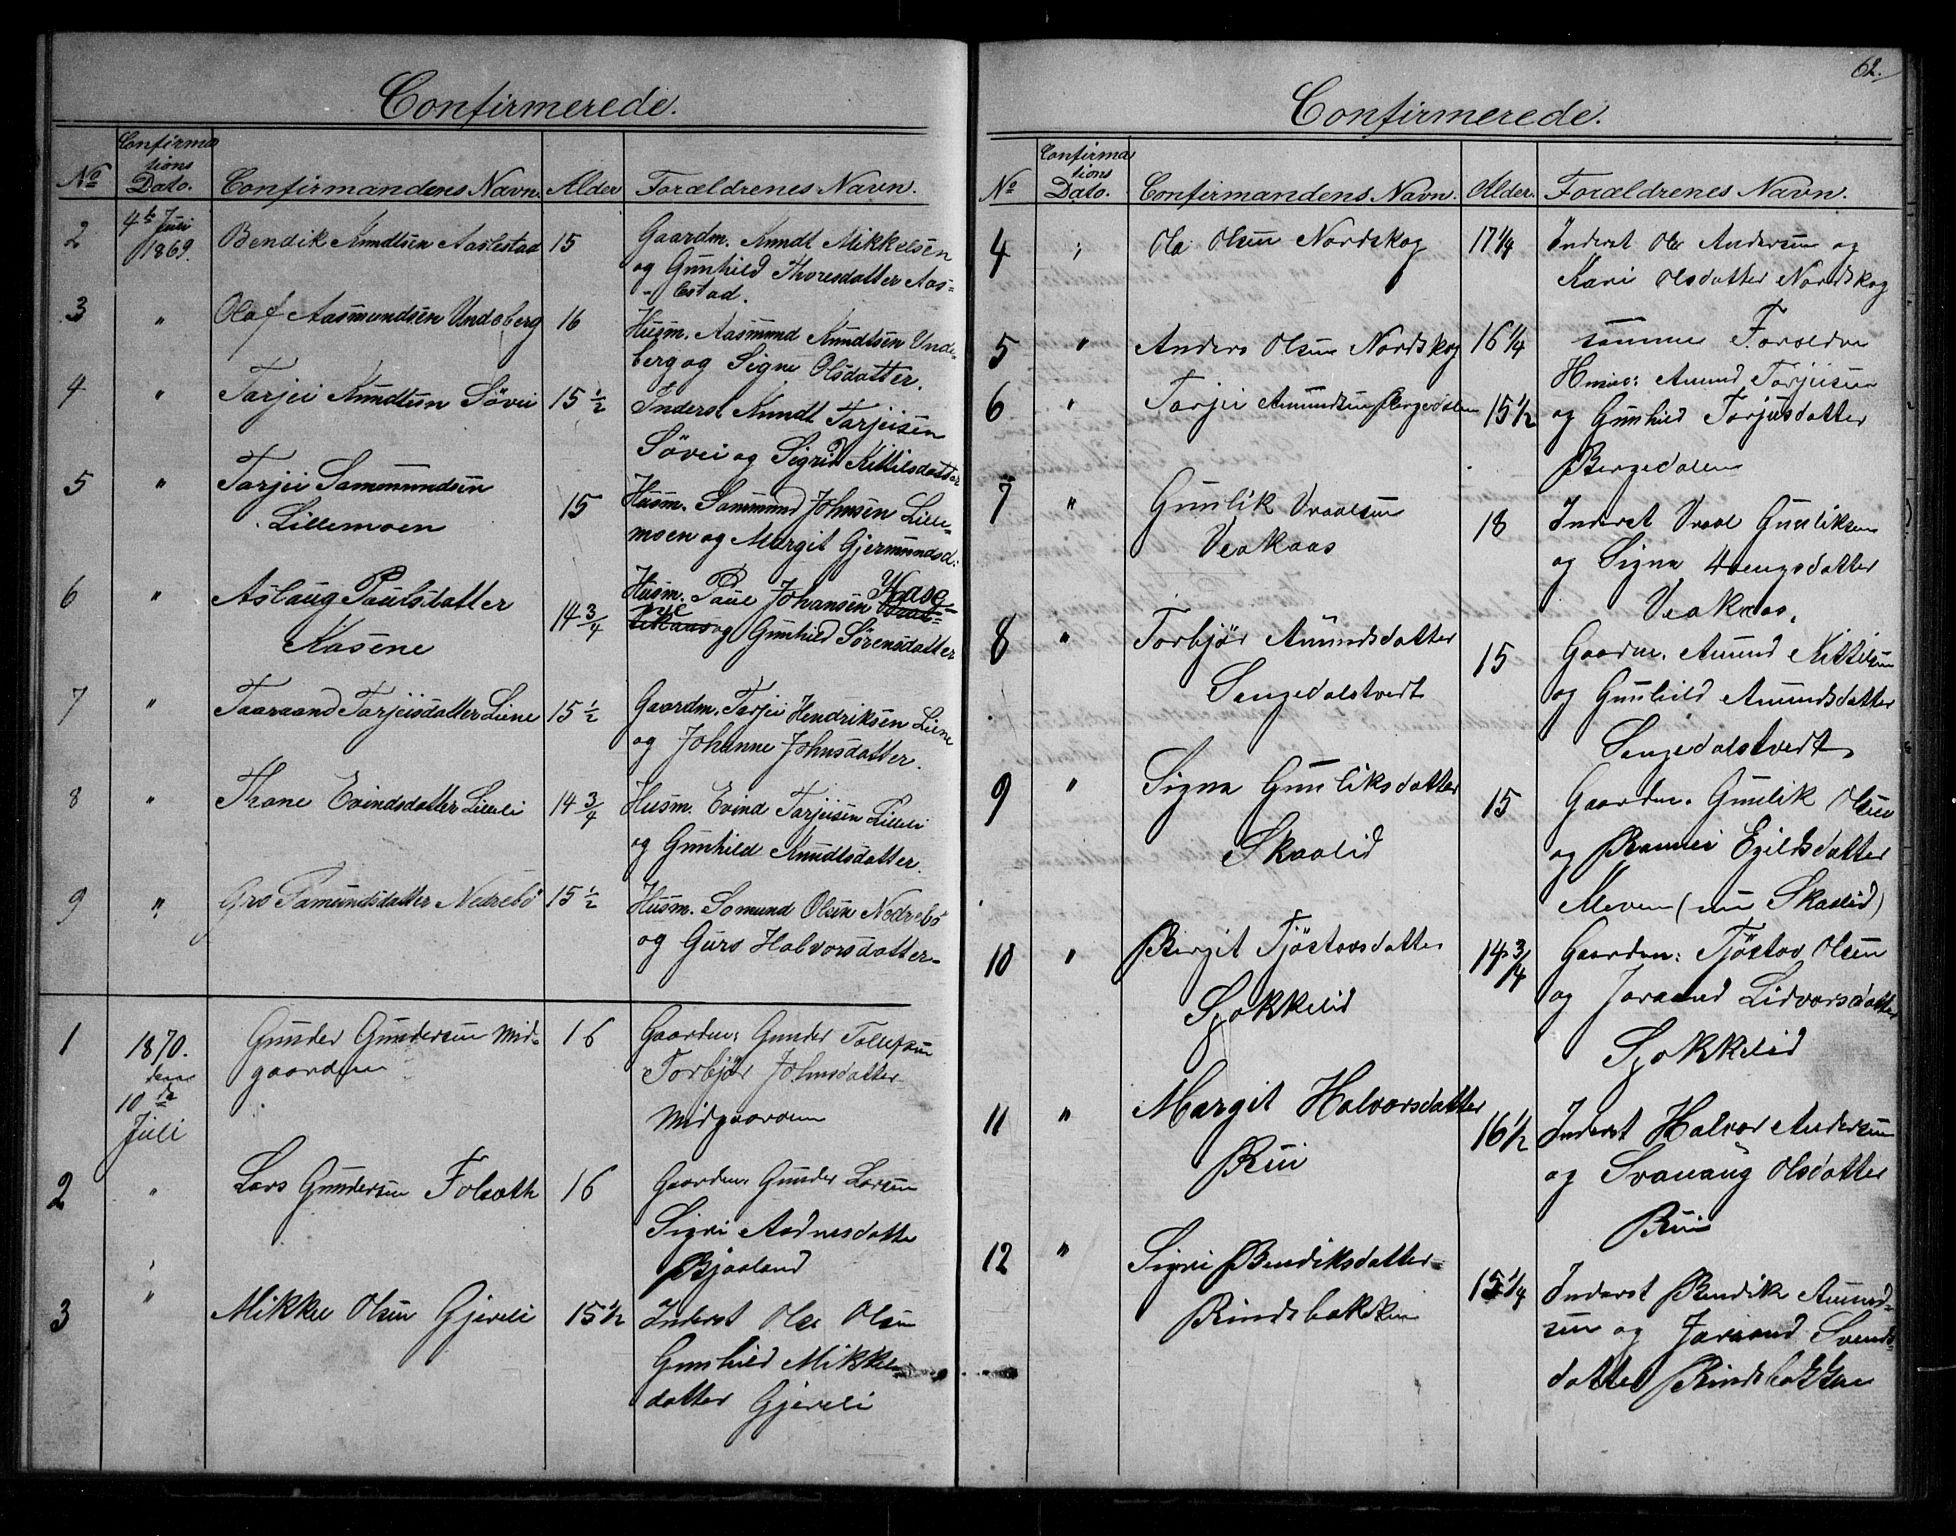 Confirmerede.
No Confirmationens Dato. Confirmandens Navn. Alder Forældrenes Navn.
2 4de Juli 1869. Bendik Knudtsen Aaslestad 15 Gaardm. Knudt Mikkelsen
og Gunhild Thoresdatter Aas-
lestad.
3 " Olaf Aasmundsen Undeberg 16 Husm. Aasmund Knudtsen Unde-
berg og Signe Olsdatter.
4 " Tarjei Knudtsen Sövei 15 1/2 Inderst Knudt Tarjeisen
Sövei og Sigrid Kittilsdatter
5 " Tarjei Sammundsen
Lillemoen 15 Husm. Sammund Johnsen Lille-
moen og Margit Gjermundsd:
6 " Aslaug Paulsdatter
Kasene 14 3/4 Husm. Paul Johansen Kase-
ne og Gunhild Sörensdatter
7 " Taaraand Tarjeisdatter Liene 15 1/2 Gaardm. Tarjei Hendriksen Liene
og Johanne Johnsdatter.
8 " Thone Evindsdatter Lilleli 14 3/4 Husm. Evind Tarjeisen Lilleli
og Gunhild Knudtsdatter.
9 " Gro Samundsdatter Nedrebö 15 1/2 Husm. Somund Olsen Nedrebö
og Guro Halvorsdatter
1 1870. den 10de Juli Gunder Gundersen Mid-
gaarden 16 Gaardm: Gunder Tollefsen
Torbjör Johnsdatter
Midgaarden
2 " Lars Gundersen Folsæth 16 Gaardm. Gunder Larsen
Sigri Aadnesdatter
Bjaaland
3 " Mikkel Olsen Gjereli 15 1/2 Inderst Ole Olsen
Gunhild Mikkels-
datter Gjereli
62.
Confirmerede.
No Confirmationens Dato. Confirmandens Navn. Alder. Forældrenes Navn.
4 " Ole Olsen Nordskog 17 1/4 Inderst Ole Andersen og
Kari Olsdatter Nordskog
5 " Anders Olsen Nordskog 16 1/4 samme Forældre
6 " Tarjei Amundsen Bergedalen 15 1/2 Husm: Amund Tarjeisen
og Gunhild Torjusdatter
Bergedalen
7 " Gunlik Vraalsen
Veakaas 18 Inderst Vraal Gunliksen
og Signe
Veakaas.
8 " Torbjör Amundsdatter
Sengedalstvedt 15 Gaardm. Amund Kittilsen
og Gunhild Amundsdatter
Sengedalstvedt
9 " Signe Gunliksdatter
Skaalid 15 Gaardm. Gunlik Olsen
og Egildsdatter
Meven (nu Skaalid)
10 " Bergit Tjöstovsdatter
Sjokkelid 14 3/4 Gaardm: Tjöstov Olsen
og Joraand Lidvorsdatter
Sjokkelid
11 " Margit Halvorsdatter
Rui 16 1/2 Inderst Halvor Andersen
og Svanaug Olsdatter
Rui
12 " Sigri Bendiksdatter
Rindsbakken 15 1/4 Inderst Bendik Amund-
sen og Joraand Svends-
datter Rindsbakken